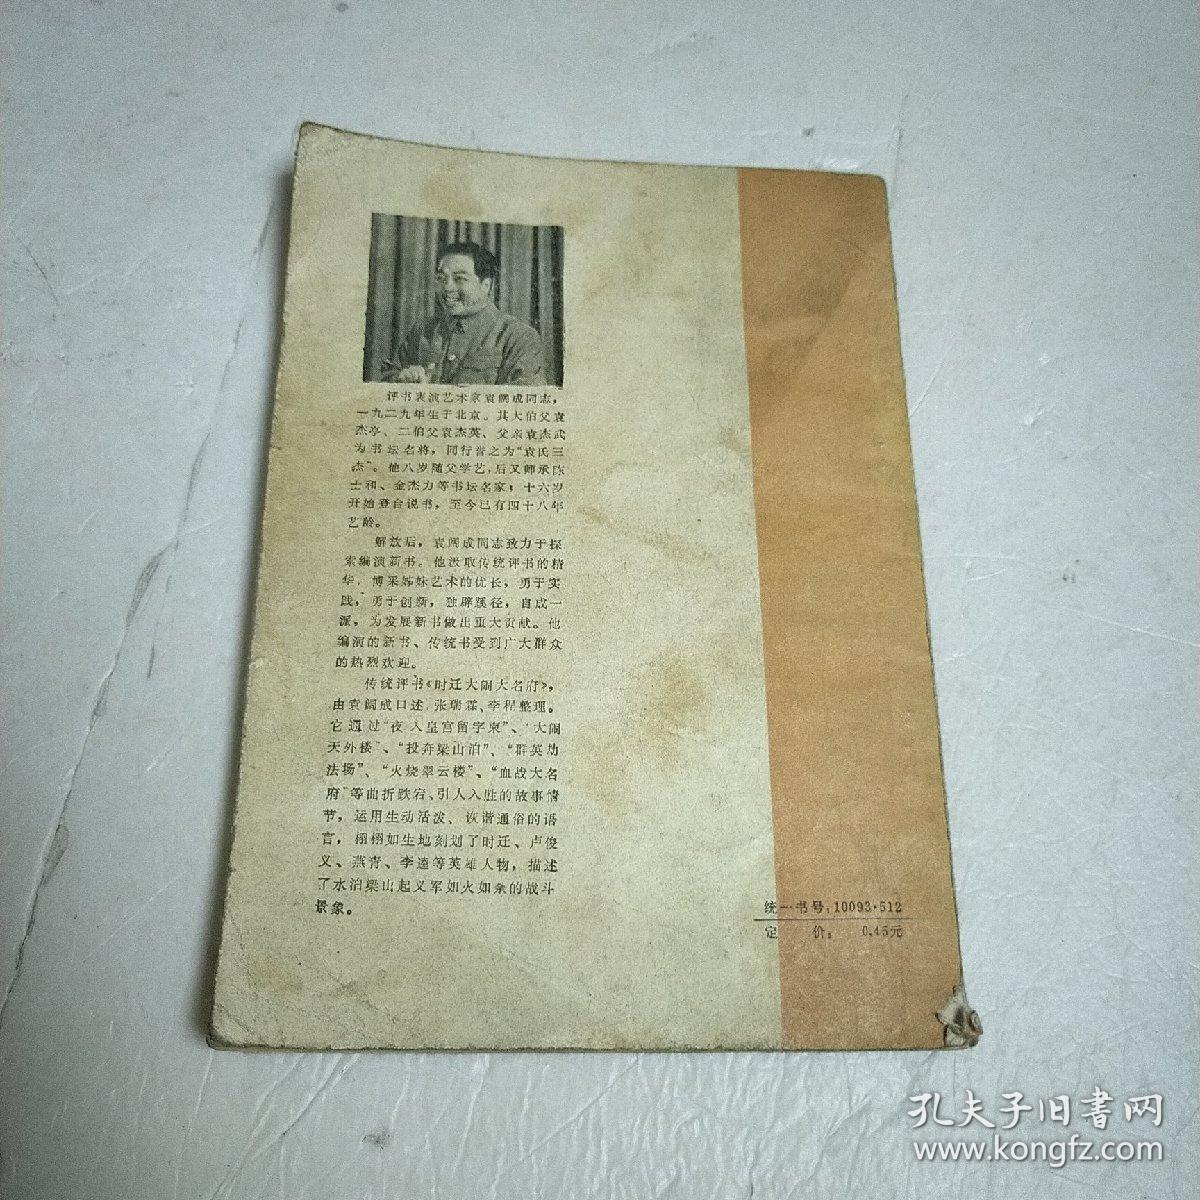 评书表演艺术家袁阔成同志，
一九二九年生于北京。其大伯父袁
杰亭、二伯父袁杰英、父亲袁杰武
为书坛名将，同行誉之为“袁氏三
杰”。他八岁随父学艺，后又师承陈
士和、金杰力等书坛名家；十六岁
开始登台说书，至今已有四十八年
艺龄。
解放后，袁阔成同志致力于探
索编演新书。他汲取传统评书的精
华，博采姊妹艺术的优长，勇于实
践，勇于创新，独辟蹊径，自成一
派，为发展新书做出重大贡献。他
编演的新书、传统书受到广大群众
的热烈欢迎。
传统评书《时迁大闹大名府》，
由袁阔成口述，张瑞霖、李程整理。
它通过“夜入皇宫留字柬”、“大闹
天外楼”、“投奔梁山泊”、“群英劫
法场”、“火烧翠云楼”、“血战大名
府”等曲折跌宕、引人入胜的故事情
节，运用生动活泼、诙谐通俗的语
言，栩栩如生地刻划了时迁、卢俊
义、燕青、李逵等英雄人物，描述
了水泊梁山起义军如火如荼的战斗
景象。
统一书号：10093·512
定 价： 0.45元
孔夫子旧书网
www.kongfz.com